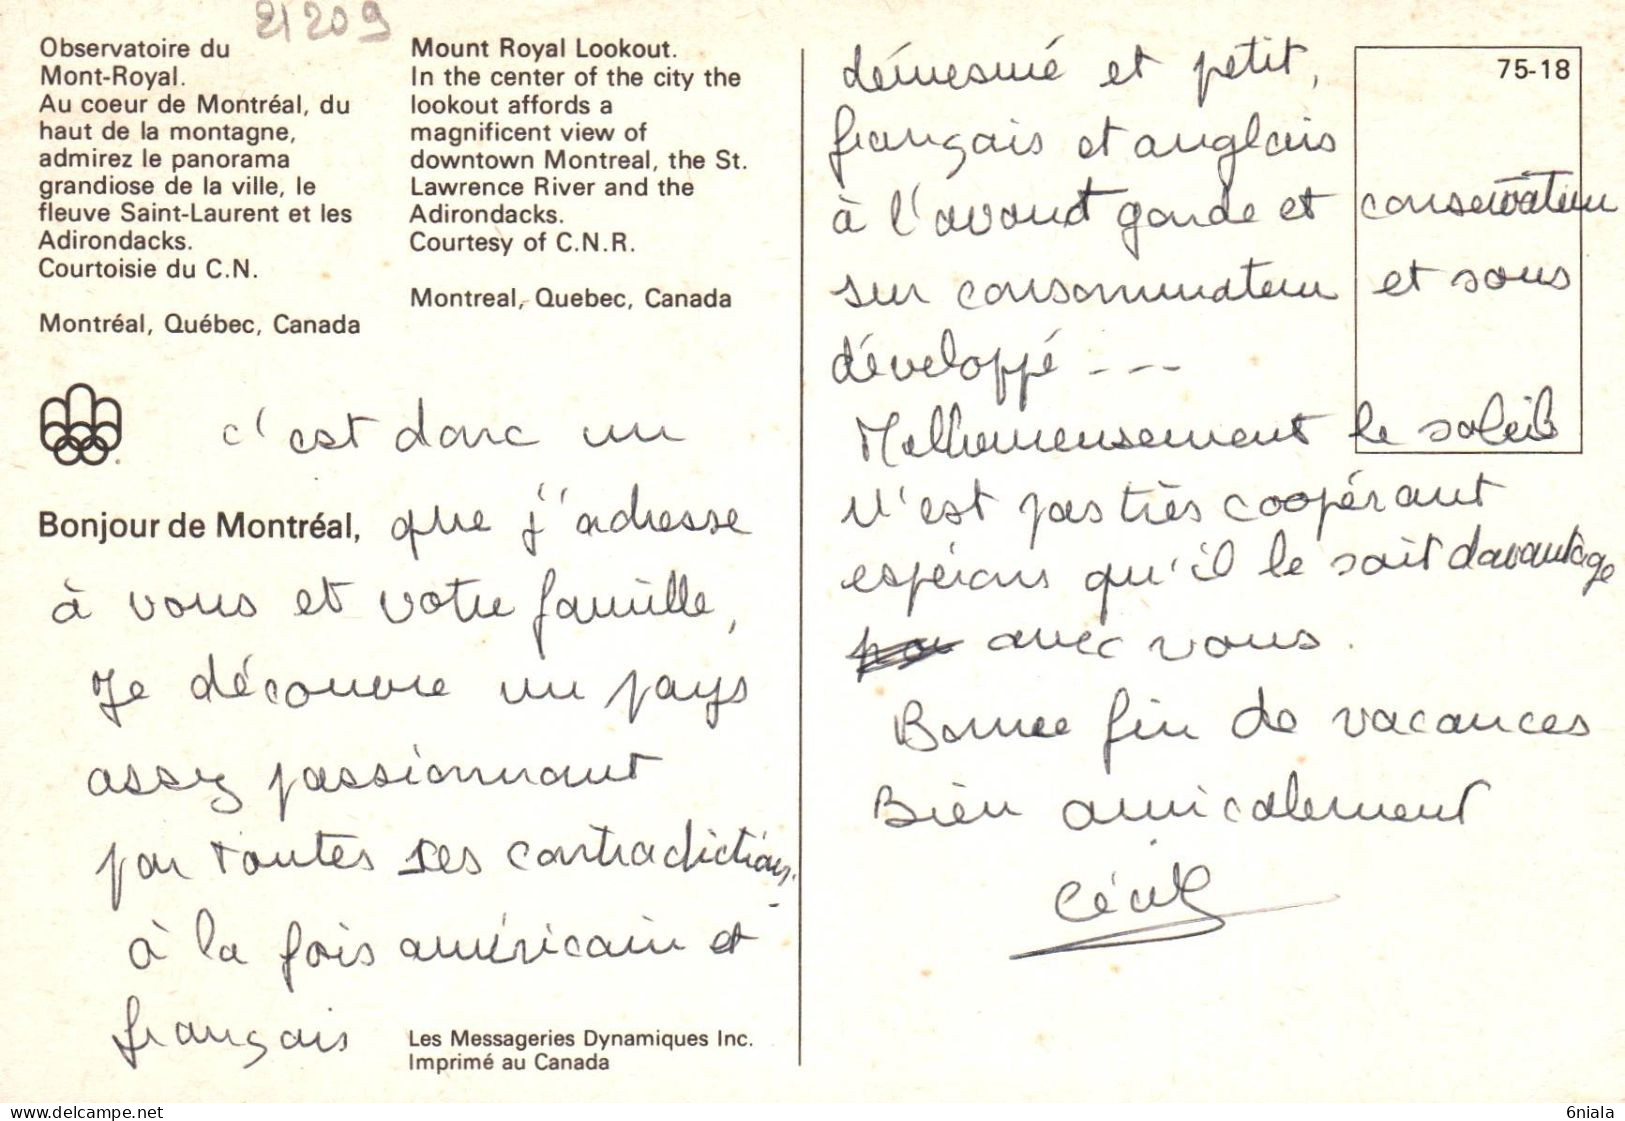 21209
Observatoire du
Mont-Royal.
Au coeur de Montréal, du
haut de la montagne,
admirez le panorama
grandiose de la ville, le
fleuve Saint-Laurent et les
Adirondacks.
Courtoisie du C.N.
Montréal, Québec, Canada
Mount Royal Lookout.
In the center of the city the
lookout affords a
magnificent view of
downtown Montreal, the St.
Lawrence River and the
Adirondacks.
Courtesy of C.N.R.
Montreal, Quebec, Canada
c'est donc un
Bonjour de Montréal, que j'adresse
à vous et votre famille,
Je découvre un pays
assez passionnant
par toutes ses contradictions.
à la fois américain et
français
Les Messageries Dynamiques Inc.
Imprimé au Canada
75-18
démesuré et petit,
français et anglais
à l'avant garde et conservateur
sur consommateur et sous
développé ---
Malheureusement le soleil
n'est pas très coopérant
espérons qu'il le soit davantage
avec vous.
Bonne fin de vacances
Bien amicalement
Cécile
6niala